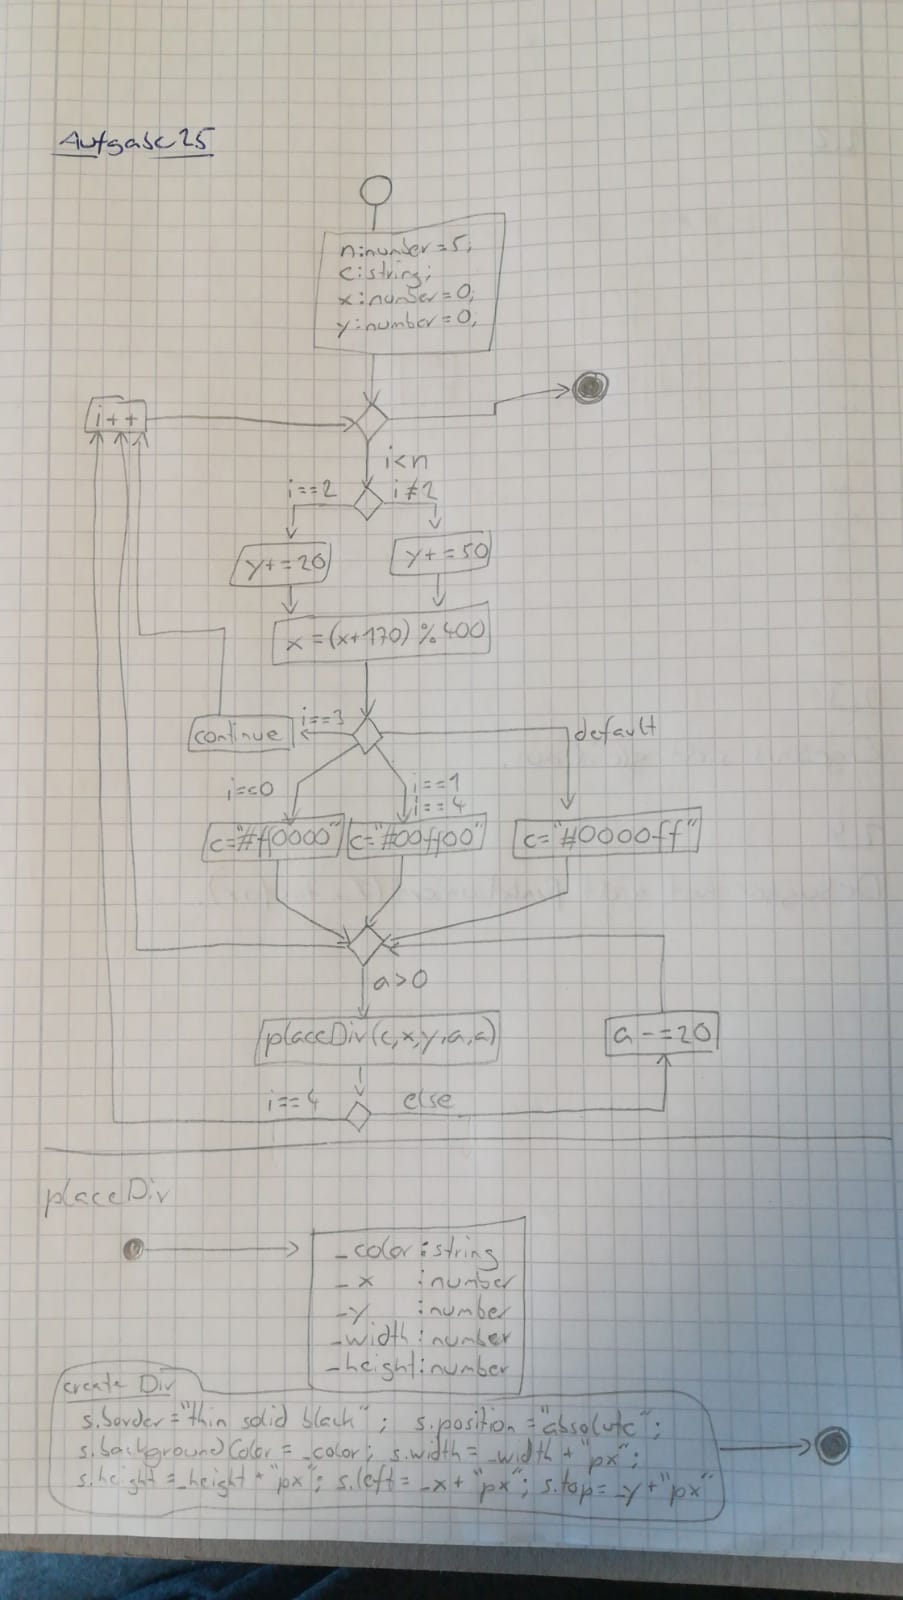 Aufgabe 25
n:number=5;
c:string;
x:number=0;
y:number=0;
i++
i<n
i==2
i≠2
y+=20
y+=50
x=(x+170)%400
continue
i==3
default
i==0
i==1
i==4
c="#ff0000"
c="#00ff00"
c="#0000ff"
a>0
placeDiv(c,x,y,a,a)
a-=20
i==4
else
placeDiv
_color:string
_x :number
_y :number
_width:number
_height:number
create Div
s.border="thin solid black"; s.position="absolute";
s.backgroundColor=_color; s.width=_width+"px";
s.height=_height+"px"; s.left=_x+"px"; s.top=_y+"px"